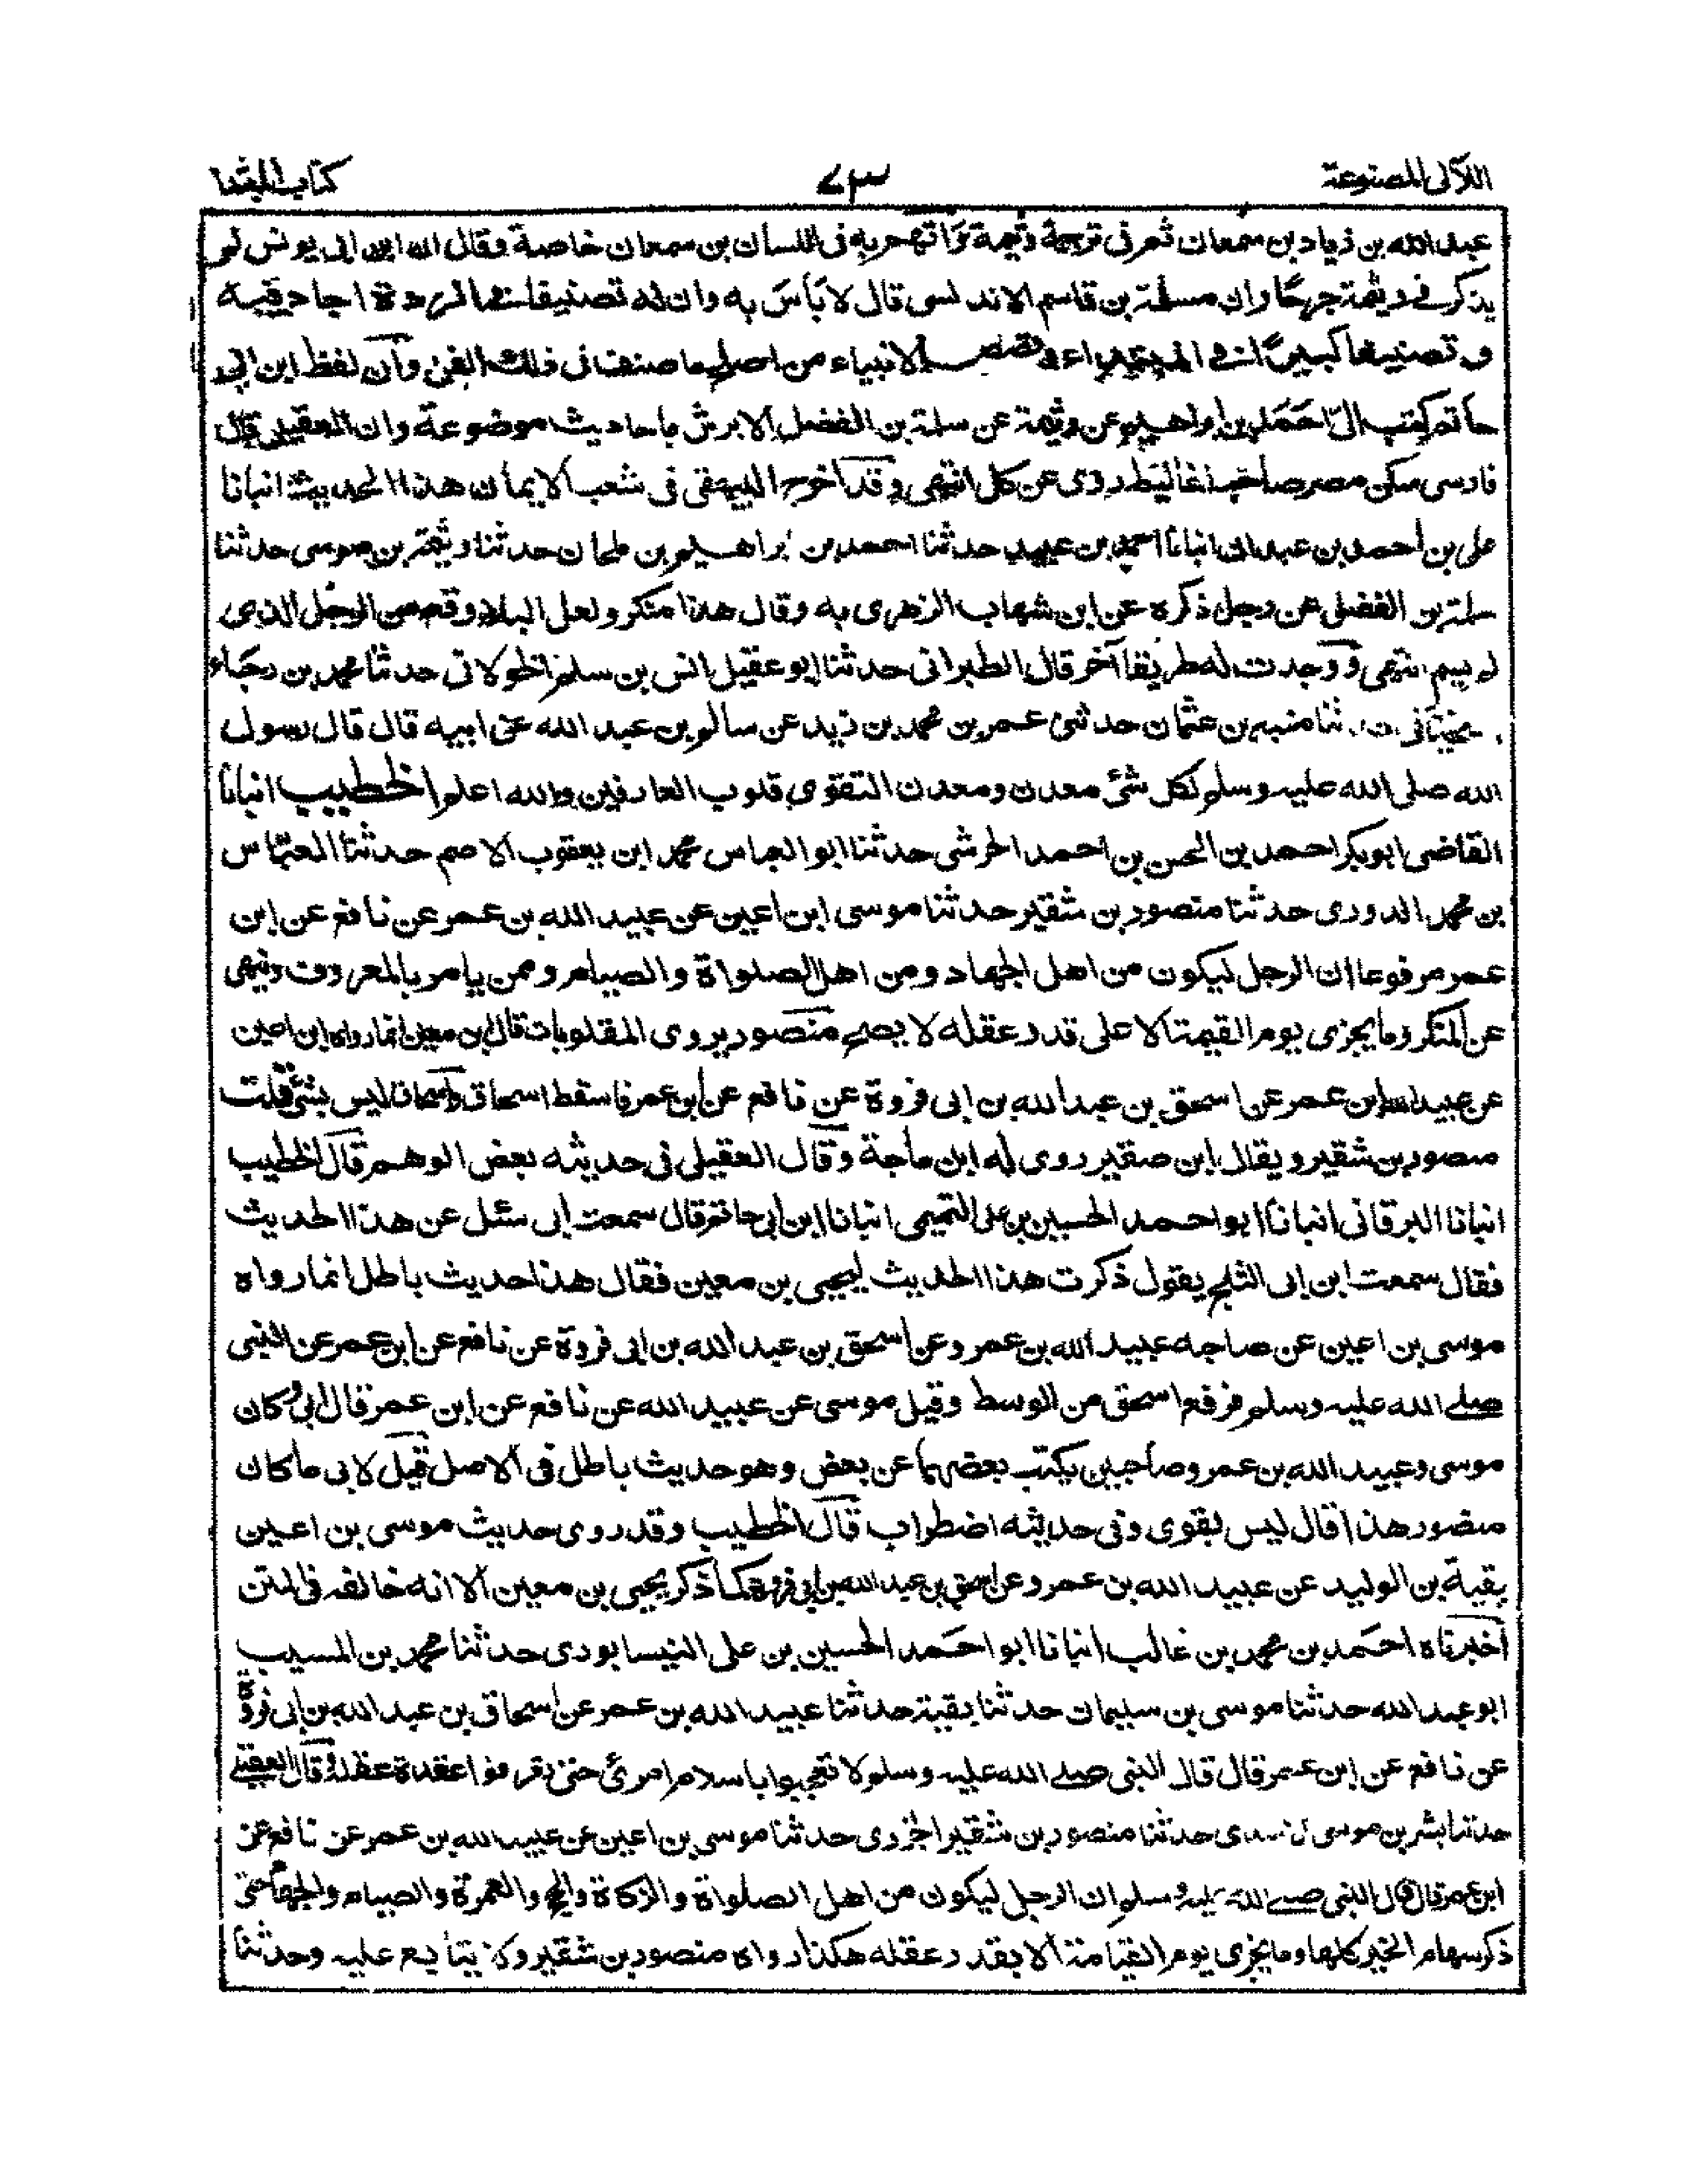 اللآلى المصنوعة ٧٣ كتاب المبتدا
عبد الله بن زياد بن سمعان ثم فى ترجمة وثيمة به فى اللسان بن سمعان خاصة وقال ان ابن يونس لم
يذكر فى وثيمة جرحًا وان مسلمة بن قاسم الاندلسى قال لا بأس به وان له تصنيفا فى الردة اجاد فيه
و تصنيفا كبيرًا فى المبتدا قصص الانبياء من صنف فى ذلك الفن وآن لفظ ابن ابى
حاتم كتب الىّ احمد بن ابراهيم عن وثيمة عن سلمة بن الفضل الابرش باحاديث موضوعة وان العقيلى قال
فارسى سكن مصر صاحب اغاليط روى عن كل انتهى وقد اخرج البيهقى فى شعب الايمان هذا الحديث انبانا
على بن احمد بن عبدان انبانا احمد بن عبيد حدثنا احمد بن ابراهيم بن ملحان حدثنا وثيمة بن موسى حدثنا
سلمة بن الفضل عن رجل ذكره عن ابن شهاب الزهرى به وقال هذا منكر ولعل البلاء وقع من الرجل الذى
لم يسم انتهى ووجدت له طريقا آخر قال الطبرانى حدثنا ابو عقيل انس بن سلم الخولانى حدثنا محمد بن رجاء
ثنا منبه بن عثمان حدثنى عمر بن محمد بن زيد عن سالم بن عبد الله عن ابيه قال قال رسول
الله صلى الله عليه وسلم لكل شئ معدن ومعدن التقوى قلوب العارفين والله اعلم الخطيب انبانا
القاضى ابوبكر احمد بن الحسن بن احمد الحرشى حدثنا ابو العباس محمد ابن يعقوب الاصم حدثنا العباس
بن محمد الدورى حدثنا منصور بن شقير حدثنا موسى ابن اعين عن عبيد الله بن عمر عن نافع عن ابن
عمر مرفوعا ان الرجل ليكون من اهل الجهاد ومن اهل الصلواة والصيام وممن يامر بالمعروف وينهى
عن المنكر وما يجزى يوم القيمة الا على قدر عقله لا يصح منصور يروى المقلوبات قال ابن معين انما رواه ابن اعين
عن عبيد الله بن عمر عن اسحق بن عبد الله بن ابى فروة عن نافع عن ابن عمر فاسقط اسحاق واسحاق ليس بشئ قلت
منصور بن شقير ويقال ابن صقير روى له ابن ماجة وقال العقيلى فى حديثه بعض الوهم قال الخطيب
انبانا البرقانى انبانا ابو احمد الحسين بن على التميمى انبانا ابن ابى حاتم قال سمعت ابى سئل عن هذا الحديث
فقال سمعت ابن ابى الثلج يقول ذكرت هذا الحديث ليحيى بن معين فقال هذا حديث باطل انما رواه
موسى بن اعين عن صاحبه عبيد الله بن عمرو عن اسحق بن عبد الله بن ابى فروة عن نافع عن ابن عمر عن النبى
صلے الله عليه وسلم فرفع اسحق من الوسط وقيل موسى عن عبيد الله عن نافع عن ابن عمر قال ابى وكان
موسى وعبيد الله بن عمرو صاحبين يكتب بعضهما عن بعض وهو حديث باطل فى الاصل قيل لابى ما كان
منصور هذا قال ليس بقوى وفى حديثه اضطراب قال الخطيب وقد روى حديث موسى بن اعين
بقية بن الوليد عن عبيد الله بن عمرو عن اسحق بن عبد الله بن ابى فروة كما ذكر يحيى بن معين الا انه خالفه فى المتن
اخبرناه احمد بن محمد بن غالب انبانا ابو احمد الحسين بن على النيسابورى حدثنا محمد بن المسيب
ابو عبد الله حدثنا موسى بن سليمان حدثنا بقية حدثنا عبيد الله بن عمر عن اسحاق بن عبد الله بن ابى فروة
عن نافع عن ابن عمر قال قال النبى صلے الله عليه وسلم لا تعجبوا باسلام امرئ حتى تعرفوا عقدة عقله وقال العقيلے
حدثنا بشر بن موسى حدثنا منصور بن شقير الجزرى حدثنا موسى بن اعين عن عبيد الله بن عمر عن نافع عن
ابن عمر قال قال النبى صلے الله عليه وسلم ان الرجل ليكون من اهل الصلواة والزكاة والحج والعمرة والصيام والجهاد حتى
ذكر سهام الخير كلها وما يجزى يوم القيامة الا بقدر عقله هكذا رواه منصور بن شقير ولا يتابع عليه وحدثنا